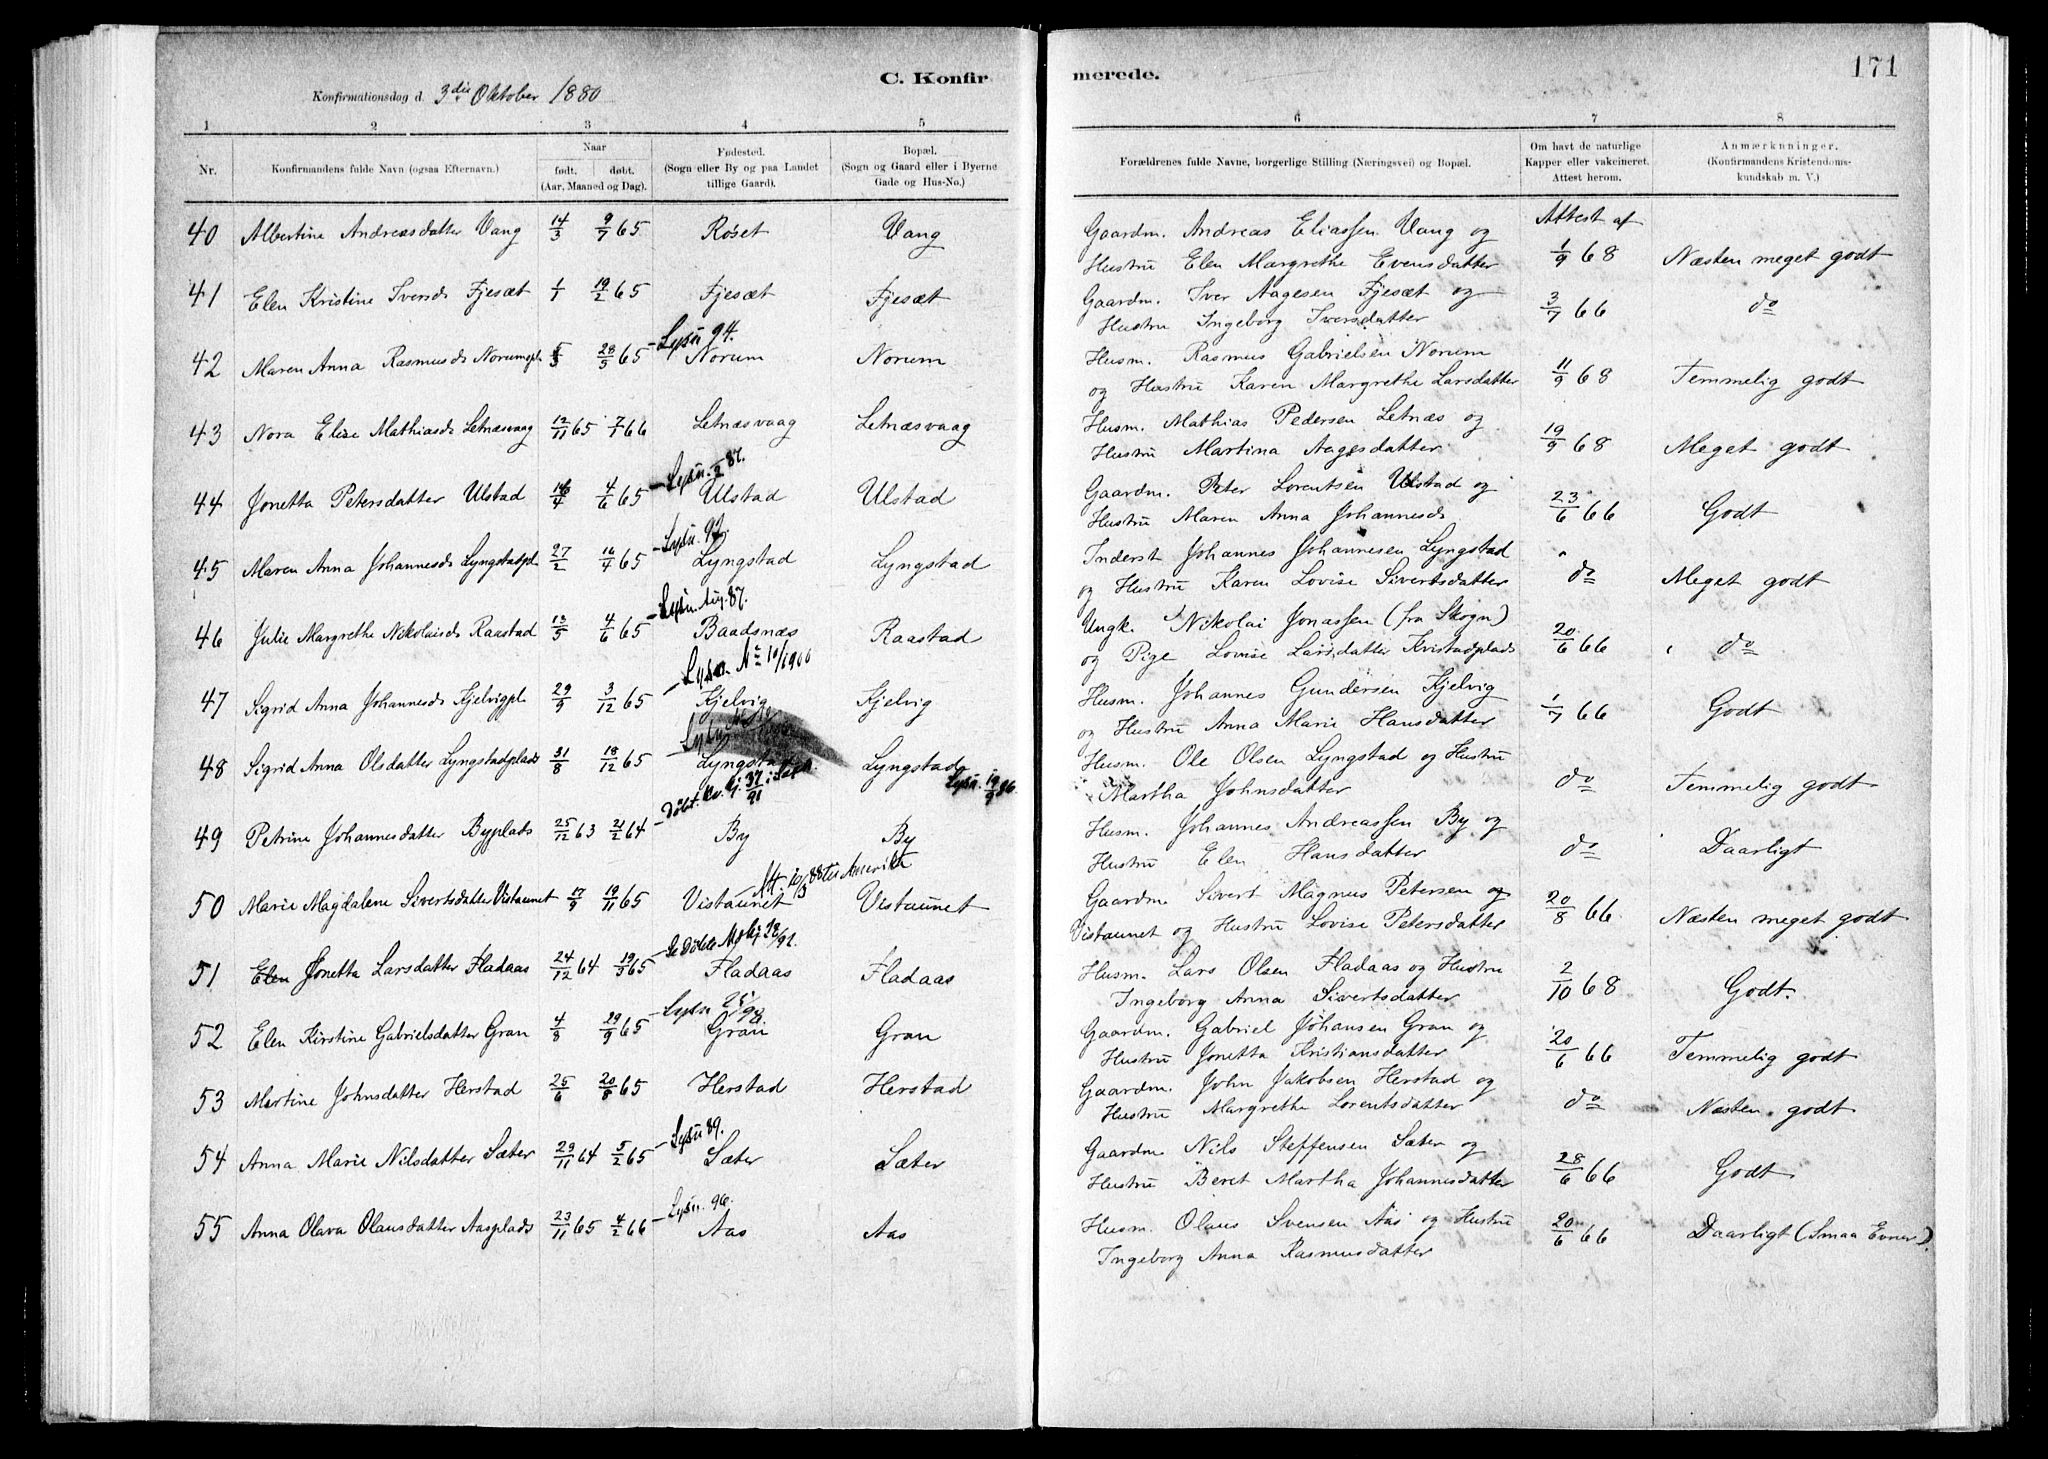 171
C. Konfirmerede.
Konfirmationsdag d. 3die Oktober 1880
1 2 3 4 5 6 7 8
Nr. Konfirmandens fulde Navn (ogsaa Efternavn). Naar født. døbt. (Aar, Maaned og Dag). Fødested. (Sogn eller By og paa Landet tillige Gaard). Bopæl. (Sogn og Gaard eller i Byerne Gade og Hus-No.) Forældrenes fulde Navne, borgerlige Stilling (Næringsvei) og Bopæl. Om havt de naturlige Kapper eller vakcineret. Attest herom. Anmærkninger. (Konfirmandens Kristendomskundskab m. V.)
40 Albertine Andreasdatter Vang 14/3 9/7 65 Røset Vang Gaardm. Andreas Eliassen Vang og Attest af
Hustru Elen Margrethe Evensdatter 1/9 68 Næsten meget godt
41 Elen Kristine Iversd. Fjesæt 1/1 19/2 65 Fjesæt Fjesæt Gaardm. Iver Aagesen Fjesæt og
Hustru Ingeborg Iversdatter 3/7 66 do
Lysn 94.
42 Maren Anna Rasmusd. Norumspl. 5/3 28/5 65 Norum Norum Husm. Rasmus Gabrielsen Norum
og Hustru Karen Margrethe Larsdatter 11/9 68 Temmelig godt
43 Nora Elise Mathiasd. Letnæsvaag 12/11 65 7/1 66 Letnæsvaag Letnæsvaag Husm. Mathias Pedersen Letnæs og
Hustru Martina Aagesdatter 19/9 68 Meget godt
Lysn. 87.
44 Jonetta Petersdatter Ulstad 16/4 4/6 65 Ulstad Ulstad Gaardm. Peter Lorentsen Ulstad og
Hustru Maren Anna Johannesd. 23/6 66 Godt
Lysn. 92.
45 Maren Anna Johannesd. Lyngstadpl. 27/2 16/4 65 Lyngstad Lyngstad Inderst Johannes Johannesen Lyngstad
og Hustru Karen Lovise Sivertsdatter do Meget godt
Lysn. Aug. 87.
46 Julie Margrethe Nikolaisd. Raastad 13/5 4/6 65 Baadsnæs Raastad Ungk. Nikolai Jonassen (fra Skogn)
og Pige Lovise Larsdatter Kristadplads 20/6 66 do
Lysn. No 10/1900
47 Sigrid Anna Johannesd. Kjelvigpl. 29/9 3/12 65 Kjelvig Kjelvig Husm. Johannes Gundersen Kjelvig
og Hustru Anna Marie Hansdatter 1/7 66 Godt
48 Sigrid Anna Olsdatter Lyngstadplads 31/8 18/12 65 Lyngstad Lyngstad Husm. Ole Olsen Lyngstad og Hustru
Lysn. 19/9 86. Martha Johnsdatter do Temmelig godt
49 Petrine Johannesdatter Byplads 25/12 63 21/2 64 By By Husm. Johannes Andreassen By og
Hustru Elen Hansdatter do Daarligt
Att. 10/3 88 til Amerika
50 Marie Magdalene Sivertsdatter Vistaunet 17/9 19/11 65 Vistaunet Vistaunet Gaardm. Sivert Magnus Petersen og
Vistaunet og Hustru Lovise Petersdatter 20/8 66 Næsten meget godt
51 Elen Jonetta Larsdatter Fladaas 24/12 64 19/3 65 Fladaas Fladaas Husm. Lars Olsen Fladaas og Hustru
Ingeborg Anna Sivertsdatter 2/10 68 Godt.
Lysn
52 Elen Kirstine Gabrielsdatter Gran 4/8 29/9 65 Gran Gran Gaardm. Gabriel Johansen Gran og
Hustru Jonetta Kristiansdatter 20/6 66 Temmelig godt
53 Martine Johnsdatter Herstad 25/6 20/8 65 Herstad Herstad Gaardm. John Jakobsen Herstad og
Hustru Margrethe Lorentsdatter do Næsten godt
Lysn 89.
54 Anna Marie Nilsdatter Sæter 29/11 64 5/2 65 Sæter Sæter Gaardm. Nils Steffensen Sæter og
Hustru Beret Martha Johannesdatter 28/6 66 Godt
Lysn. 96.
55 Anna Olava Olausdatter Aasplads 23/11 65 4/2 66 Aas Aas Husm. Olaus Svensen Aas og Hustru
Ingeborg Anna Rasmusdatter 20/6 66 Daarligt (Smaa Evner).